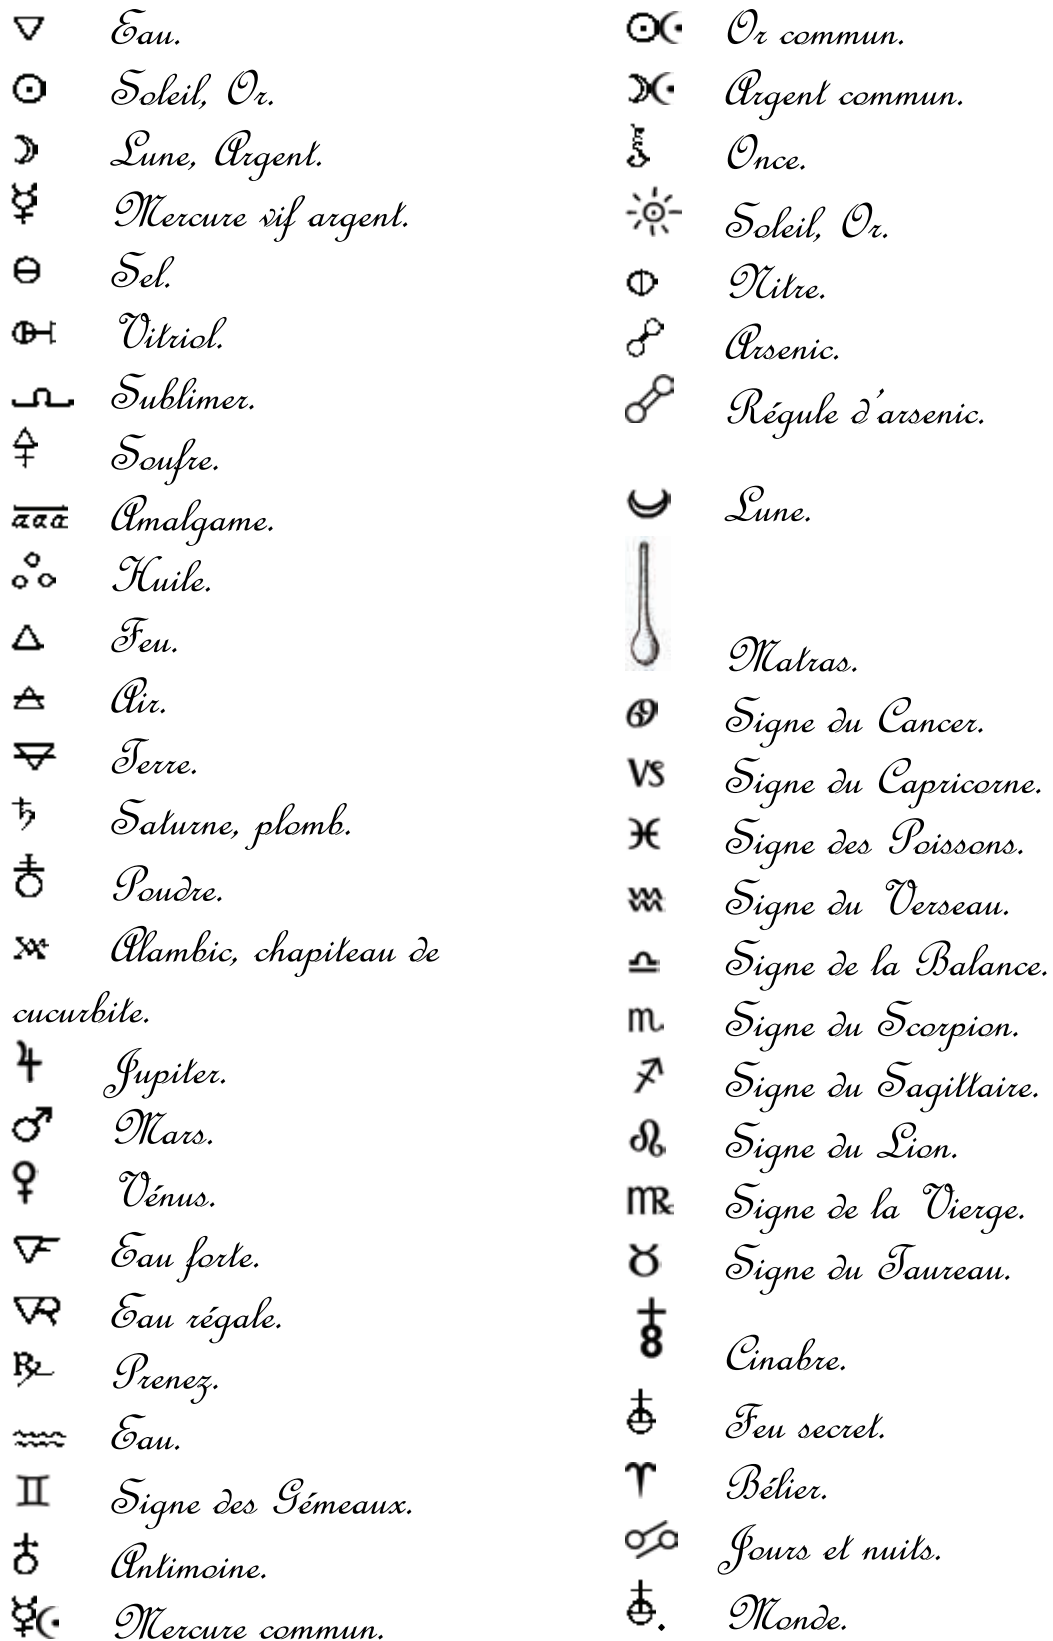 Eau.
Soleil, Or.
Lune, Argent.
Mercure vif argent.
Sel.
Vitriol.
Sublimer.
Soufre.
aaa Amalgame.
Huile.
Feu.
Air.
Terre.
Saturne, plomb.
Poudre.
Alambic, chapiteau de
cucurbite.
Jupiter.
Mars.
Vénus.
Eau forte.
Eau régale.
Prenez.
Eau.
Signe des Gémeaux.
Antimoine.
Mercure commun.
Or commun.
Argent commun.
Once.
Soleil, Or.
Nitre.
Arsenic.
Régule d'arsenic.
Lune.
Matras.
Signe du Cancer.
Signe du Capricorne.
Signe des Poissons.
Signe du Verseau.
Signe de la Balance.
Signe du Scorpion.
Signe du Sagittaire.
Signe du Lion.
Signe de la Vierge.
Signe du Taureau.
Cinabre.
Feu secret.
Bélier.
Jours et nuits.
Monde.